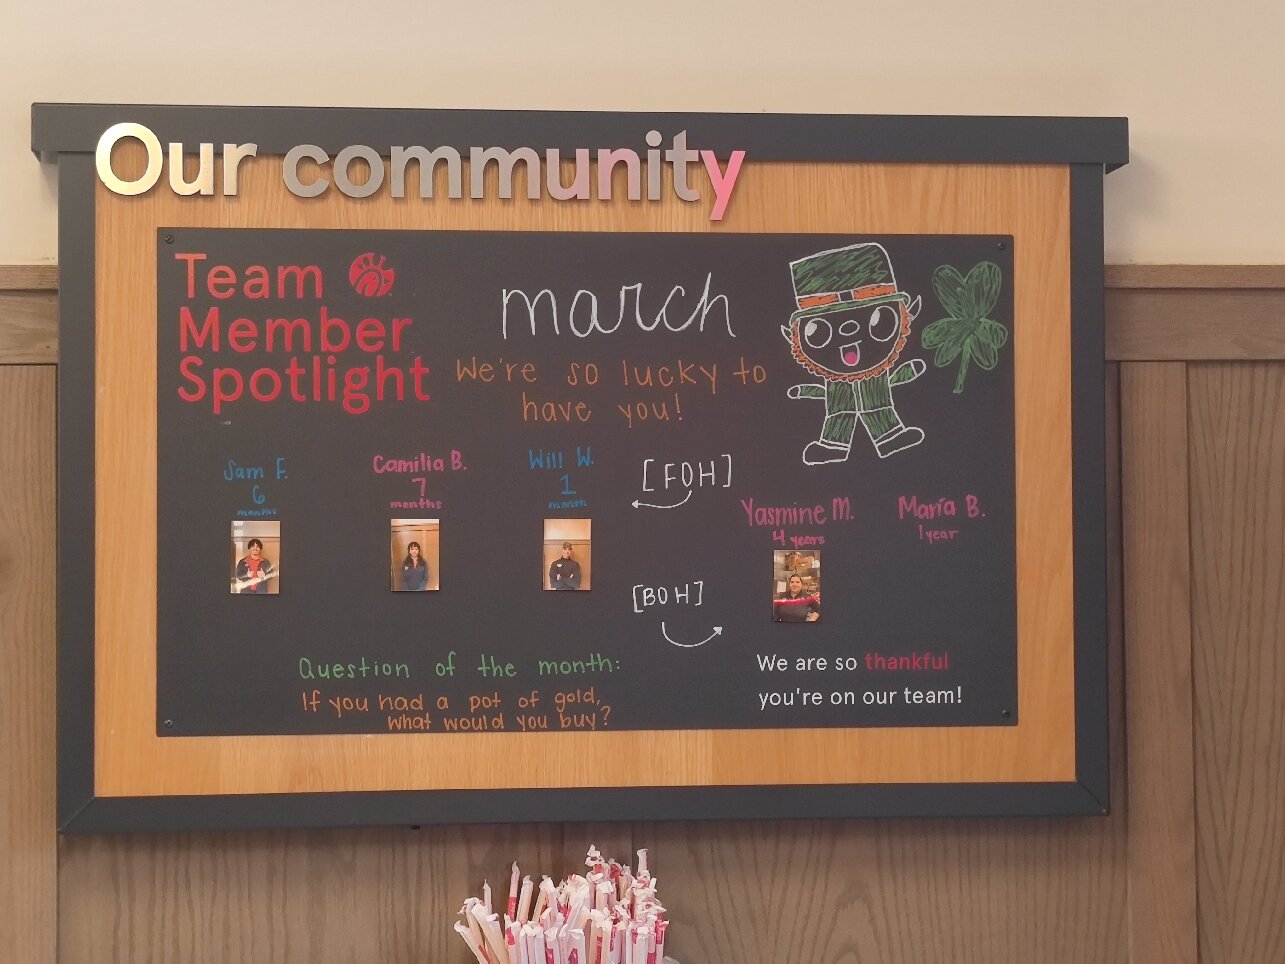 Our community
Team
Member
Spotlight
march
We're so lucky to
have you!
Sam F.
6
months
Camilia B.
7
months
Will W.
1
month
[FOH]
[BOH]
Yasmine M.
4 years
María B.
1 year
Question of the month:
If you had a pot of gold,
what would you buy?
We are so thankful
you're on our team!